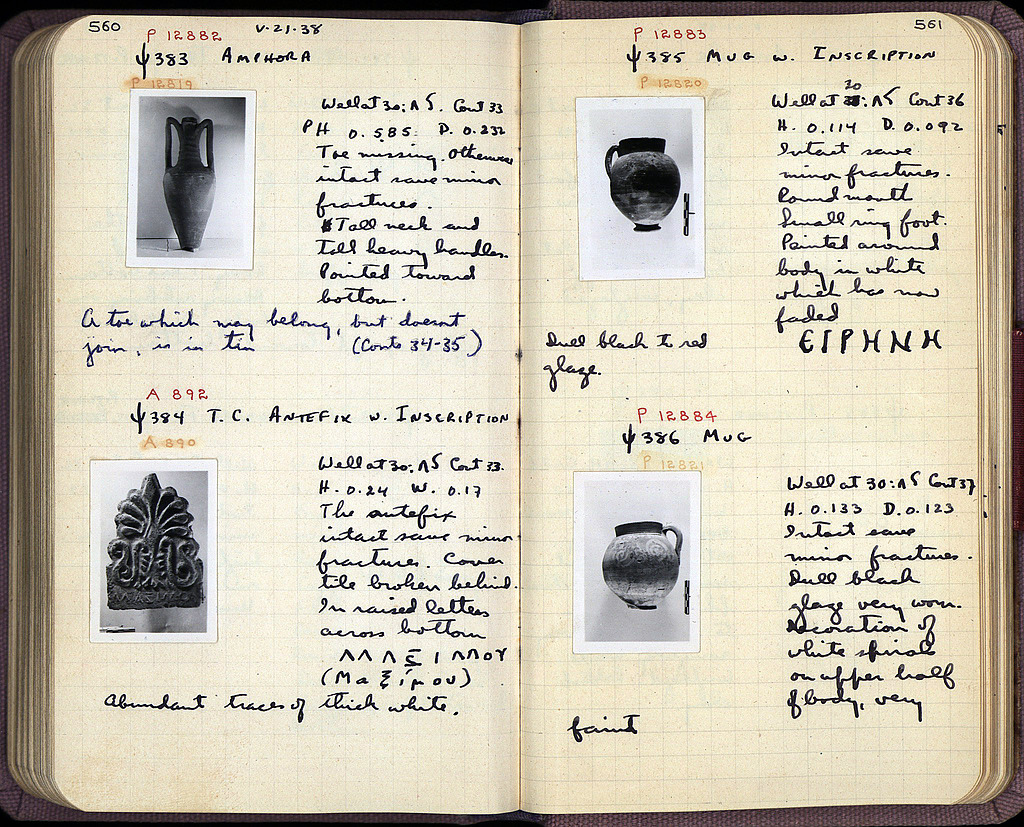 560
V-21-38
P 12882
ψ383 AMPHORA
P 12819
Well at 30:ΛΣ. Cont 33
PH 0.585. D. 0.232
Toe missing. Otherwise
intact save minor
fractures.
Tall neck and
tall heavy handles.
Pointed toward
bottom.
A toe which may belong, but doesnt
join, is in tin (Conts 34-35)
A 892
ψ384 T.C. ANTEFIX W. INSCRIPTION
A 890
Well at 30:ΛΣ Cont 33.
H. 0.24 W. 0.17
The antefix
intact save minor
fractures. Cover
tile broken behind.
In raised letters
across bottom
(Μαξίμου)
Abundant traces of thick white.
561
P 12883
ψ385 MUG W. INSCRIPTION
P 12820
30
Well at :ΛΣ Cont 36
H. 0.114 D. 0.092
Intact save
minor fractures.
Round mouth
Small ring foot.
Painted around
body in white
which has now
faded
ΕΙΡΗΝΗ
Dull black to red
glaze.
P 12884
ψ386 MUG
P 12821
Well at 30:ΛΣ Cont 37
H. 0.133 D. 0.123
Intact save
minor fractures.
Dull black
glaze very worn.
Decoration of
white spirals
on upper half
of body, very
faint